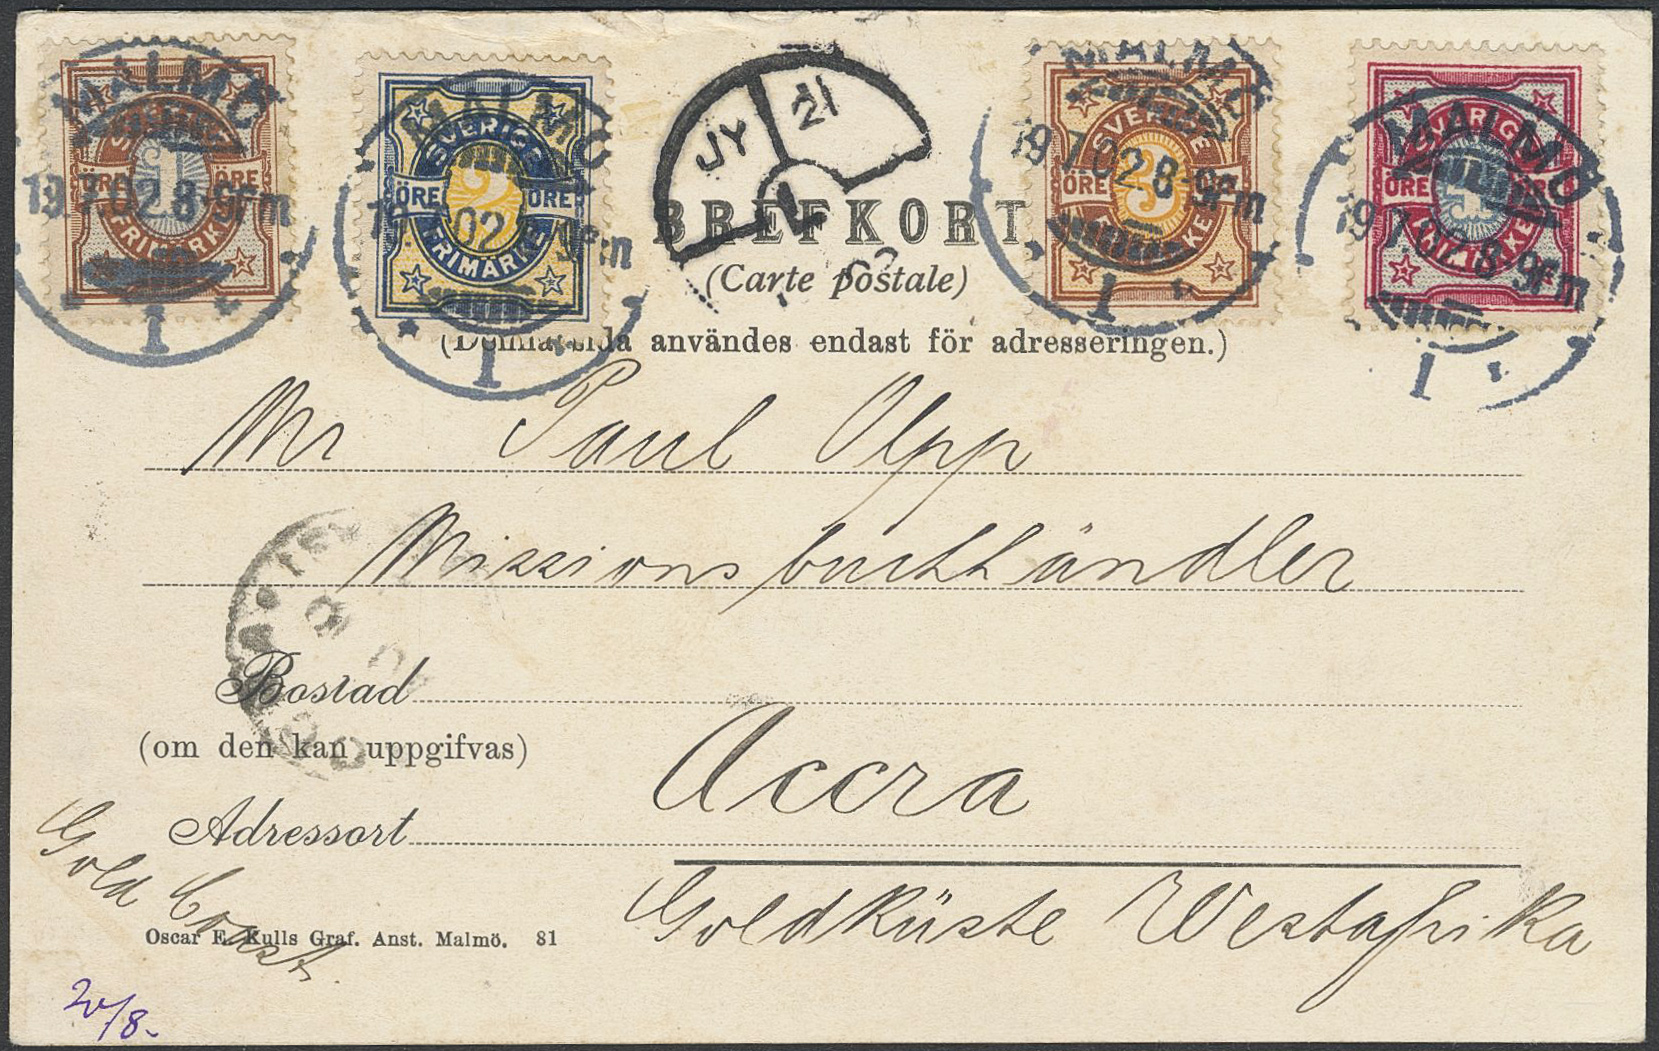 MALMÖ
19 7 02 8-9 F m
1
SVERIGE
1
ÖRE
FRIMÄRKE
MALMÖ
19 02 8-9 F m
1
SVERIGE
ÖRE 2 ÖRE
FRIMÄRKE
JY 21
MALMÖ
19 7 02 8-9 F m
1
SVERIGE
ÖRE 3
MALMÖ
19 7 02 8-9 F m
1
SVERIGE
ÖRE 4
BREFKORT
(Carte postale)
(Denna sida användes endast för adresseringen.)
Mr Paul Opp
Missionsbuchhändler
Bostad
(om den kan uppgifvas)
Accra
Adressort
Gold Coast.
Goldküste Westafrika
Oscar E. Kulls Graf. Anst. Malmö. 81